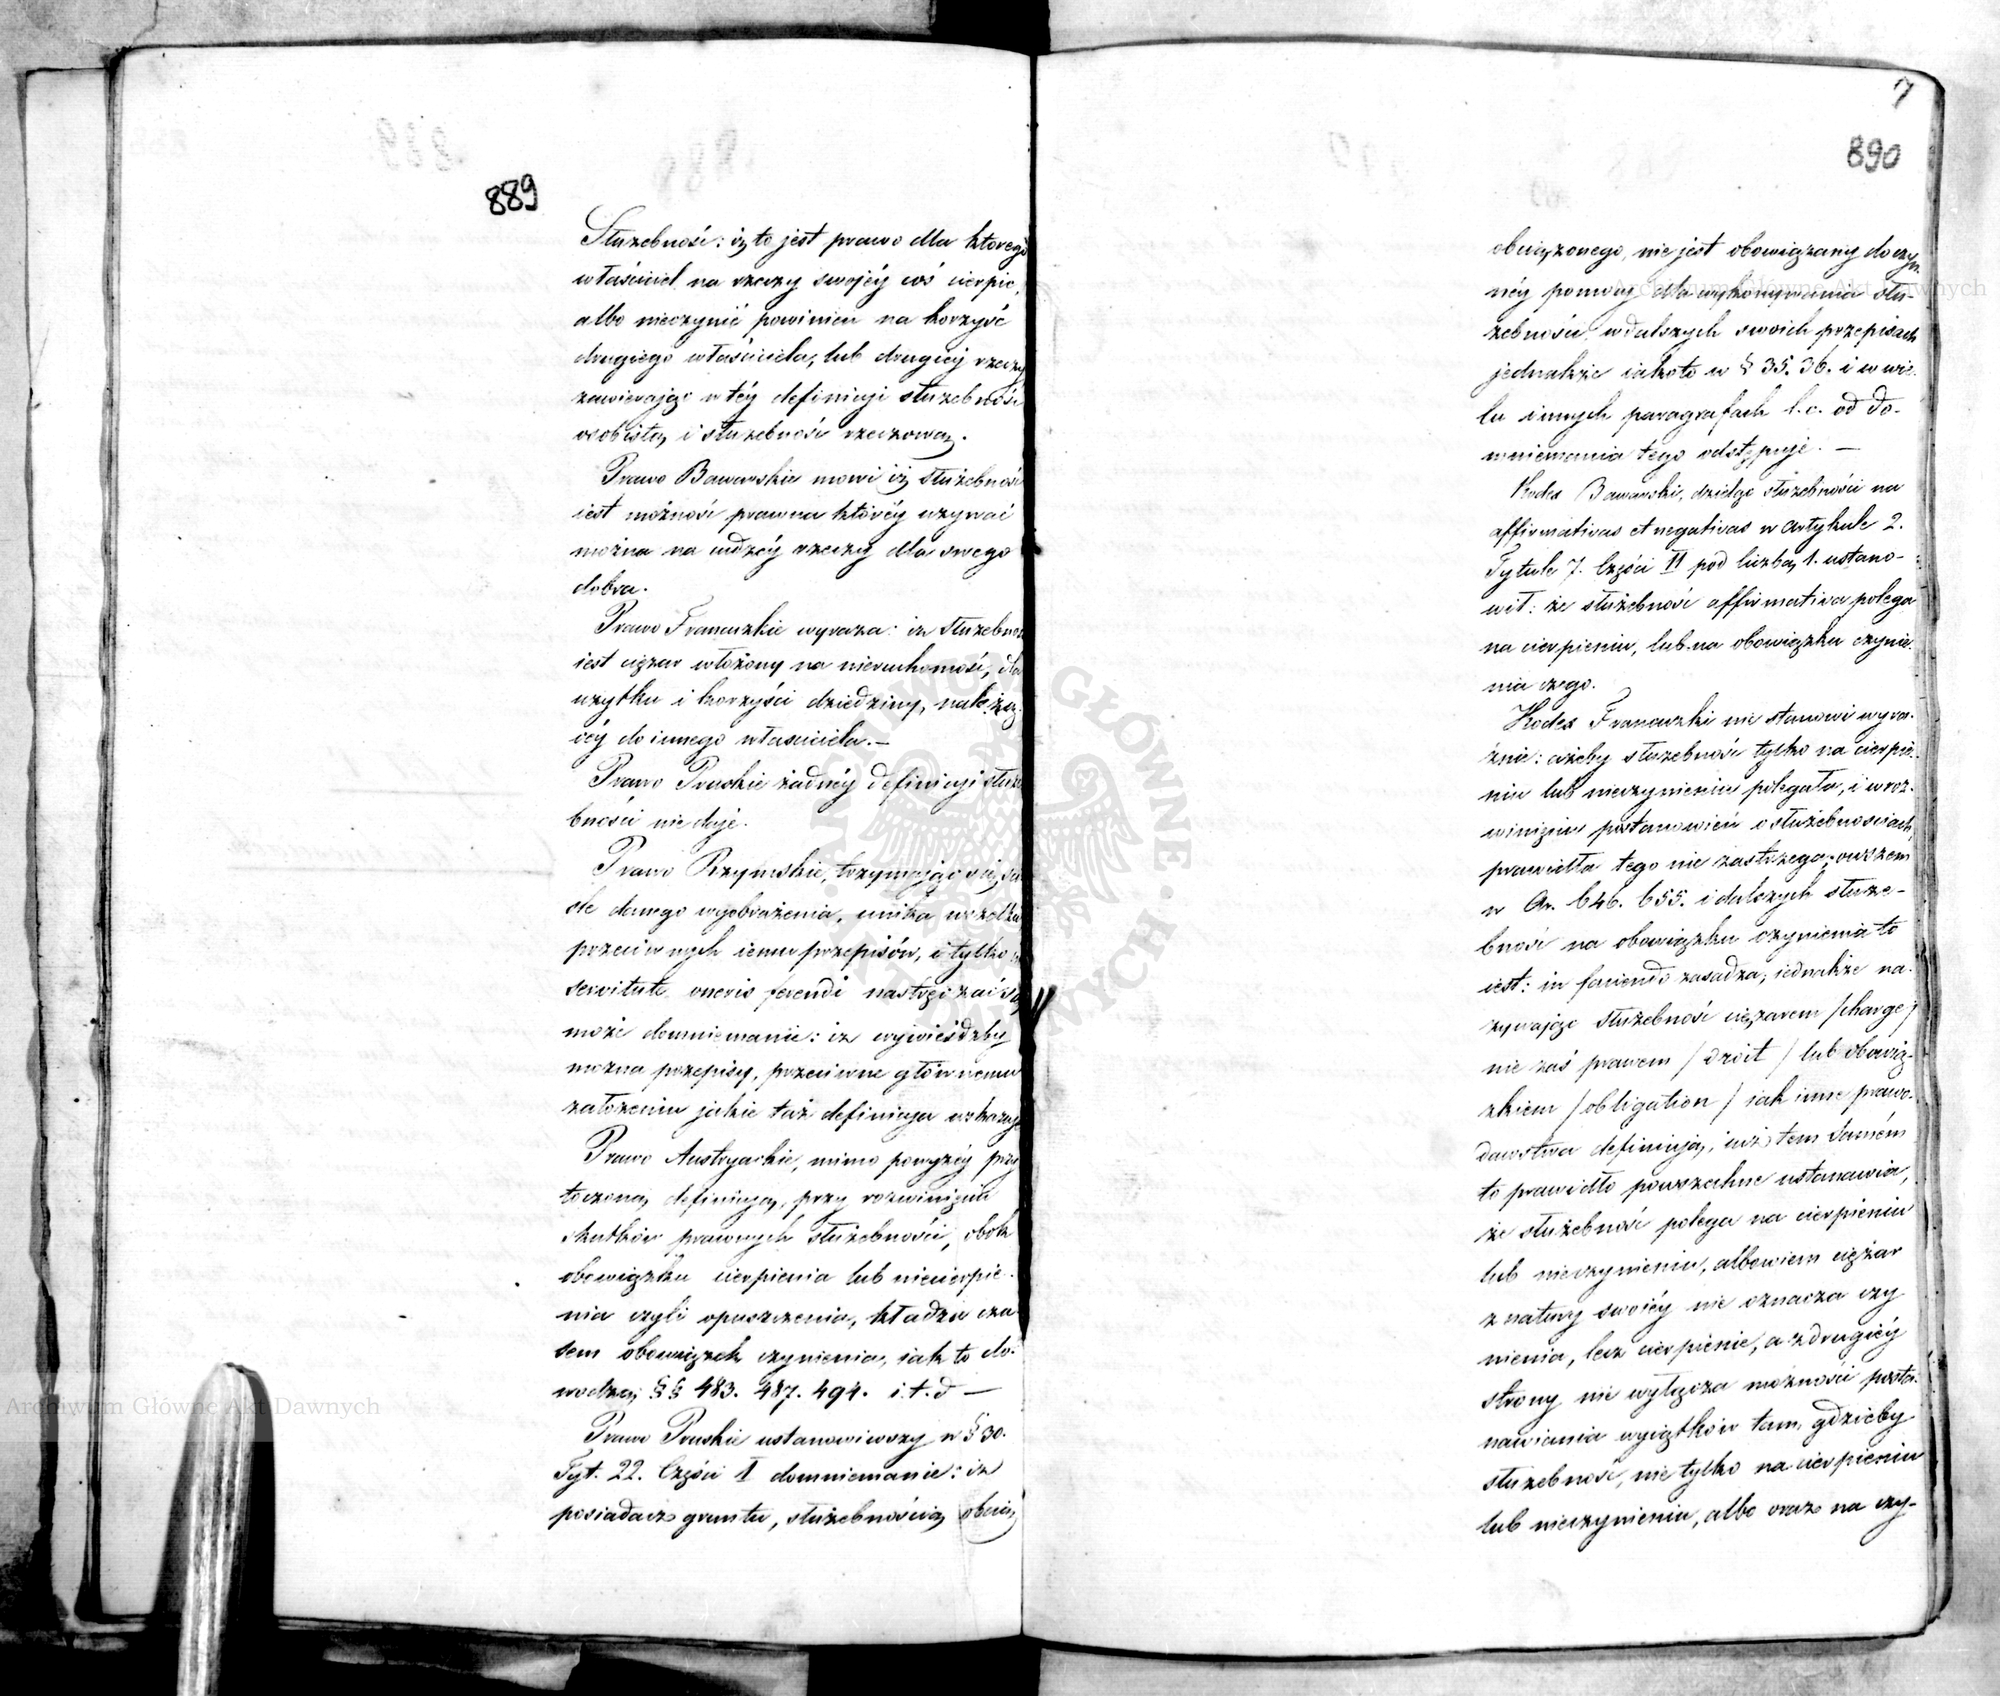 889
Służebność: iż to jest prawo dla którego
właściciel na rzeczy swojéj coś cierpić,
albo nieczynić powinien na korzyść
drugiego właściciela, lub drugiéj rzeczy
zawierając w téj definicyi służebność
osobistą i służebność rzeczową.
Prawo Bawarskie mowi iż służebność
iest możność prawna któréj używać
można na cudzéj rzeczy dla swego
dobra.
Prawo Francuzkie wyraża: iż służebność
iest ciężar włożony na nieruchomość, dla
użytku i korzyści dziedziny, należą-
céj do innego właściciela. —
Prawo Pruskie żadnéj definicyi służe
bności nie daje.
Prawo Rzymskie, trzymając się
danego wyobrażenia, unika wszelkich
przeciwnych iemu przepisów, i tylko w
servitute oneris ferendi nastręczać się
może domniemanie: iż wywieśdźby
można przepisy, przeciwne głównemu
założeniu jakie taż definicya wskazuje
Prawo Austryackie, mimo powyżéj przy
toczoną definicyą, przy rozwinięciu
skutków prawnych służebności, obok
obowiązku cierpienia lub niecierpie-
nia czyli opuszczenia, kładzie cza
sem obowiązek czynienia, iak to do-
wodzą §§ 483. 487. 494. i.t.d —
Prawo Pruskie ustanowiwszy w § 30.
Tyt. 22. Części I domniemanie: iż
posiadacz gruntu, służebnością obcią
7
890
obciążonego, nie jest obowiązany do czyn
néj pomocy dla wykonywania słu-
żebności, w dalszych swoich przepisach
jednakże iakoto w § 35. 36. i w wie-
lu innych paragrafach l.c. od do-
mniemania tego odstępuje. —
Kodex Bawarski, dzieląc służebności na
affirmativas et negativas w artykule 2.
Tytule 7. Części II pod liczbą 1. ustano-
wił: że służebność affirmativa polega
na cierpieniu, lub na obowiązku czynie-
nia czego.
Kodex Francuzki nie stanowi wyra-
źnie: ażeby służebność tylko na cierpie-
niu lub nieczynieniu polegała, i w roz-
winięciu postanowień o służebnościach,
prawidła tego nie zastrzega; owszem
w Ar. 646. 655. i dalszych służe-
bność na obowiązku czynienia to
iest: in faciendo zasadza; iednakże na-
zywając służebność ciężarem /charge/
nie zaś prawem /droit/ lub obowią-
zkiem /obligation/ iak inne prawo-
dawstwa definiują, iuż tem samém
to prawidło powszechne ustanawia,
że służebność polega na cierpieniu
lub nieczynieniu, albowiem ciężar
z natury swoiéj nie oznacza czy
nienia, lecz cierpienie, a z drugiéj
strony nie wyłącza możności posta-
nawiania wyiątków tam, gdzieby
służebność, nie tylko na cierpieniu
lub nieczynieniu, albo oraz na czy-
Archiwum Główne Akt Dawnych
Archiwum Główne Akt Dawnych